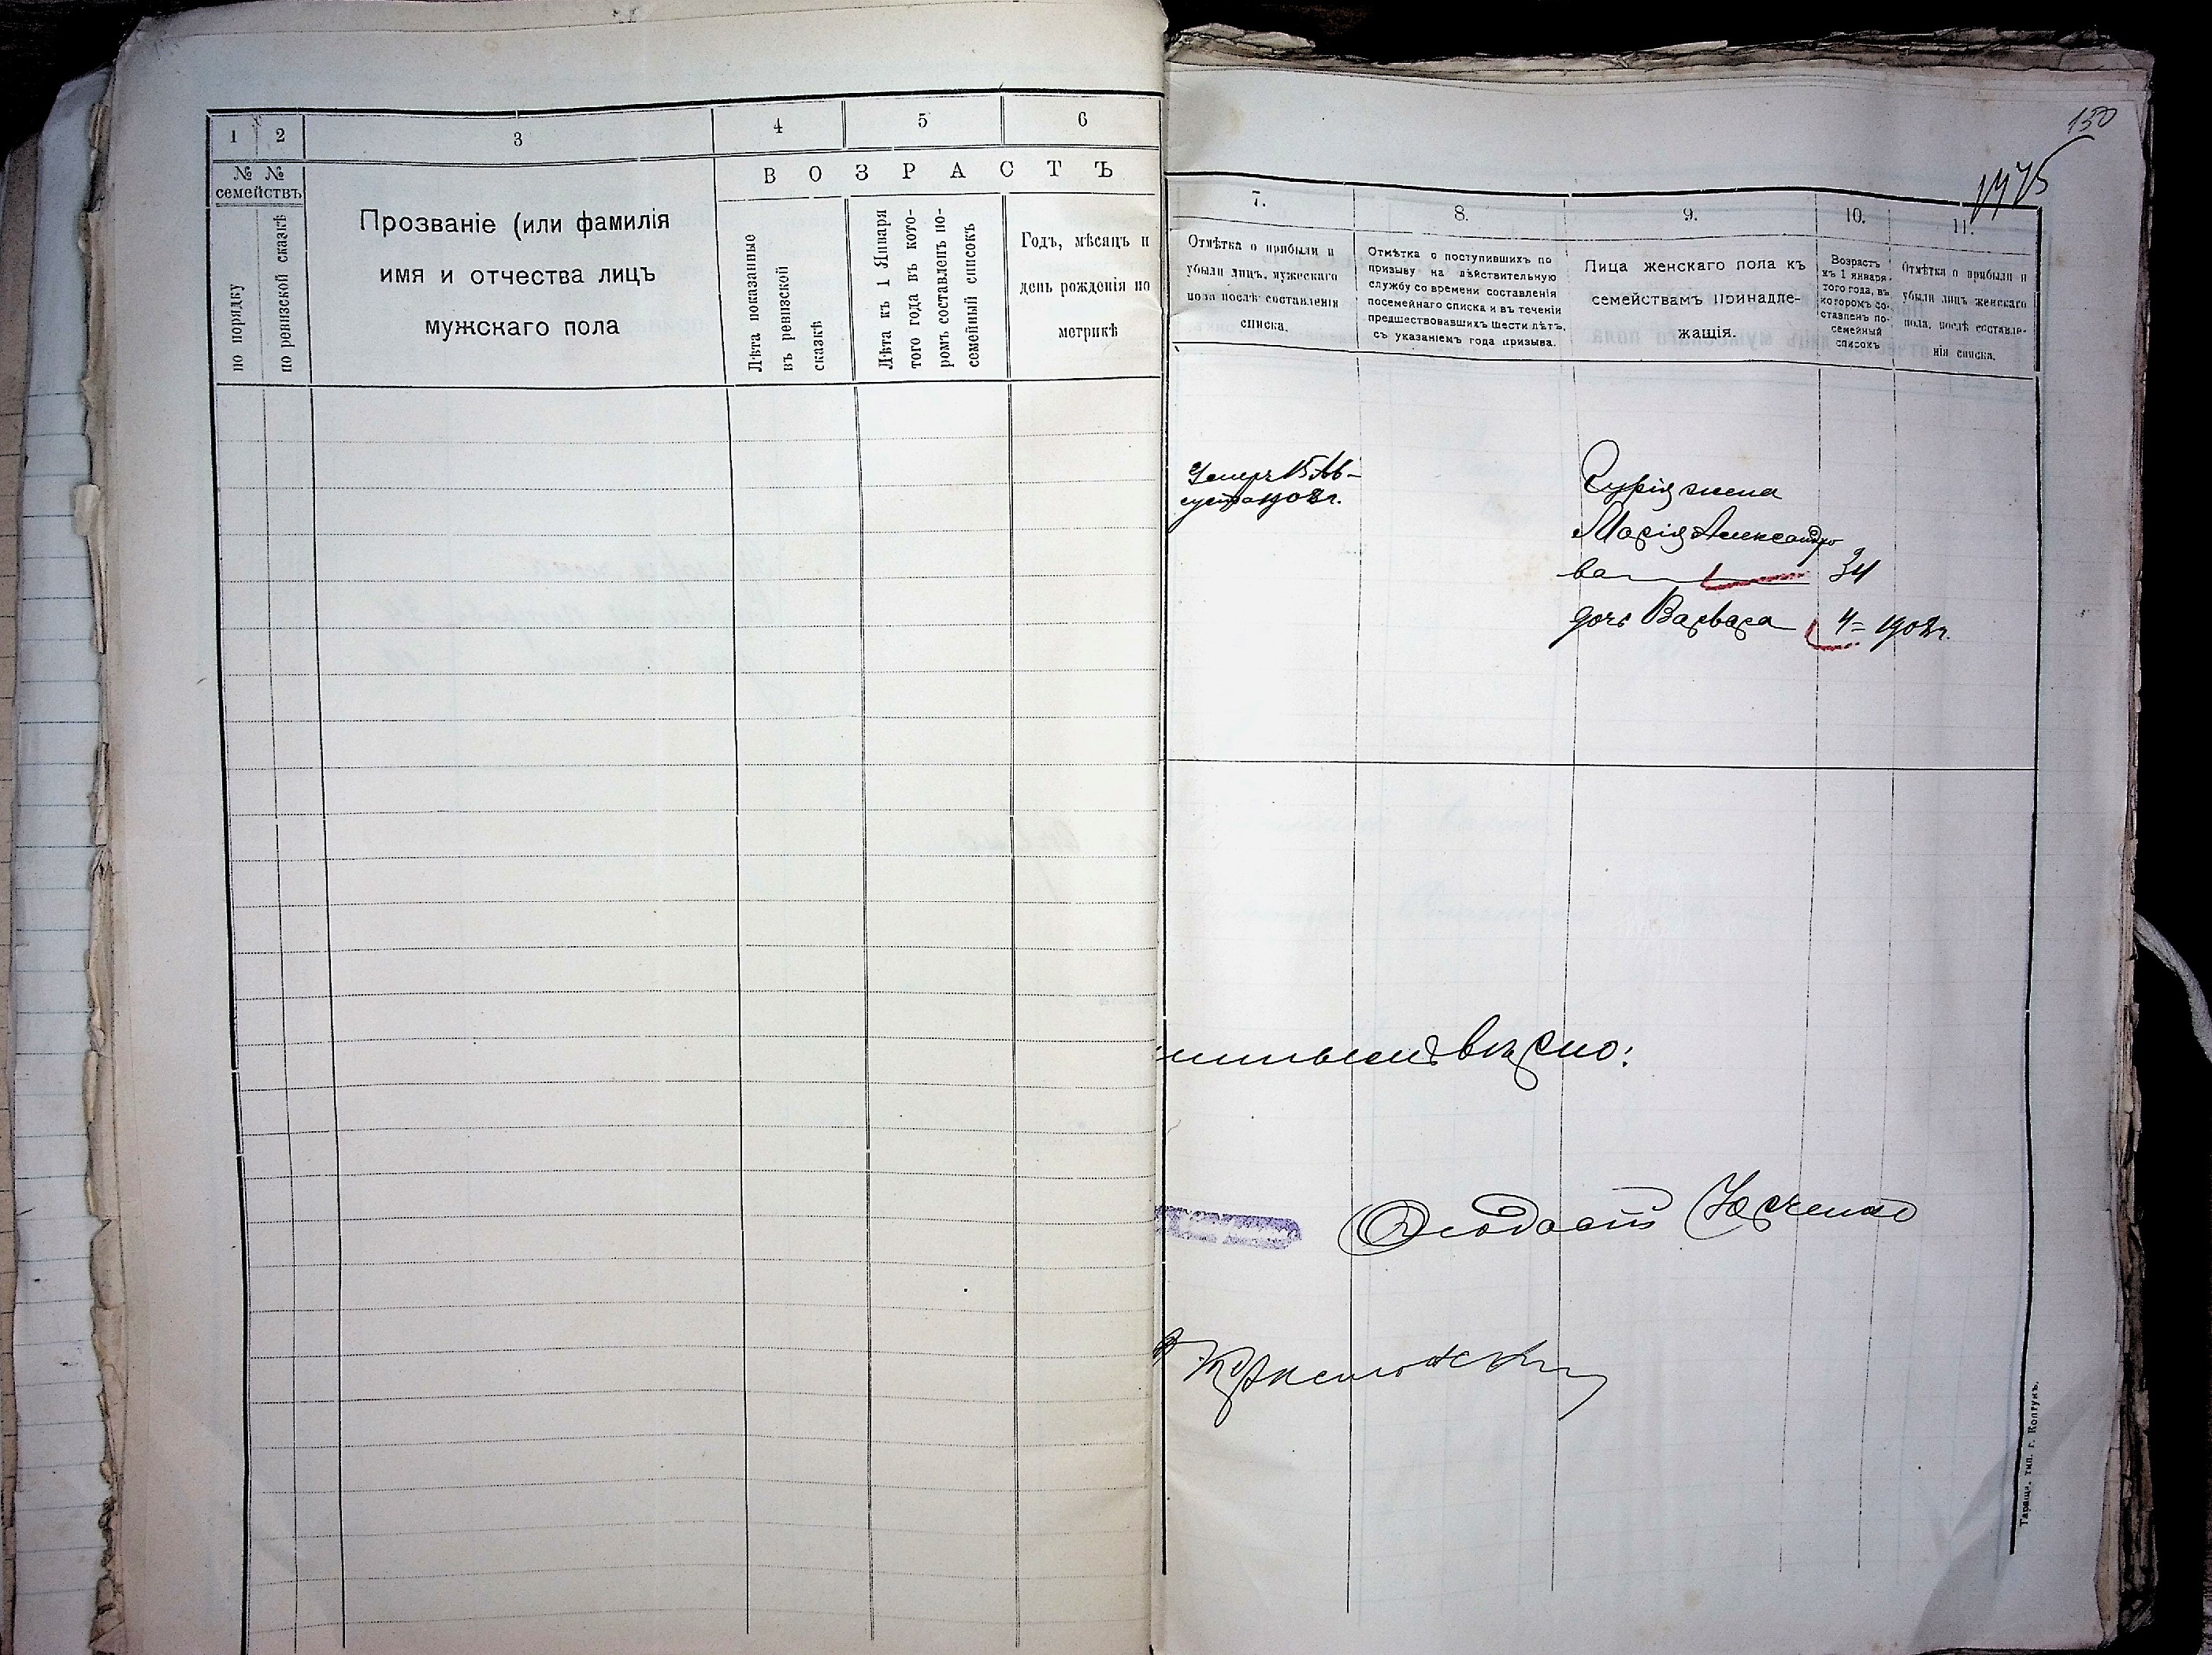 1
2
3
4
5
6
№ №
семействъ
по порядку
по ревизской сказкѣ
Прозваніе (или фамилія
имя и отчества лицъ
мужскаго пола
ВОЗРАСТЪ
Лѣта показанные
въ ревизской
сказкѣ
Лѣта къ 1 Января
того года въ кото-
ромъ составленъ по-
семейный списокъ
Годъ, мѣсяцъ и
день рожденія по
метрикѣ
150
1475
7.
8.
9.
10.
11.
Отмѣтка о прибыли и
убыли лицъ, мужескаго
пола послѣ составленія
списка.
Отмѣтка о поступившихъ по
призыву на дѣйствительную
службу со времени составленія
посемейнаго списка и въ теченіи
предшествовавшихъ шести лѣтъ,
съ указаніемъ года призыва.
Лица женскаго пола къ
семействамъ принадле-
жащія.
Возрастъ
къ 1 января
того года, въ
которомъ со-
ставленъ по-
семейный
списокъ
Отмѣтка о прибыли и
убыли лицъ женскаго
пола, послѣ составле-
нія списка.
Умеръ 15 Ав-
густа 1908 г.
Гурія жена
Марія Александро
ва 34
дочь Варвара 4 = 1908 г.
вѣрно:
Феодосій Юрченко
Тараща, тип. г. Колтунъ.